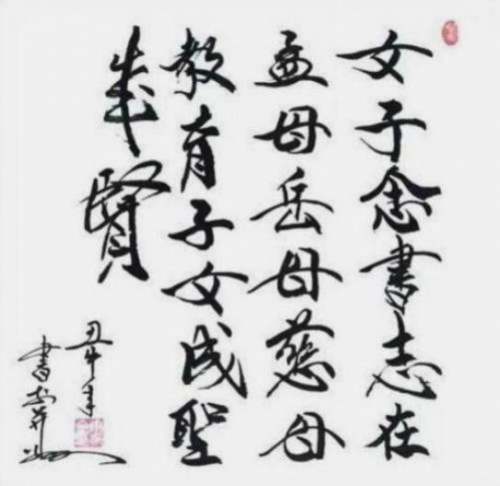 女子念書志在
孟母岳母慈母
教育子女成聖
成賢
丑牛年
書於并州